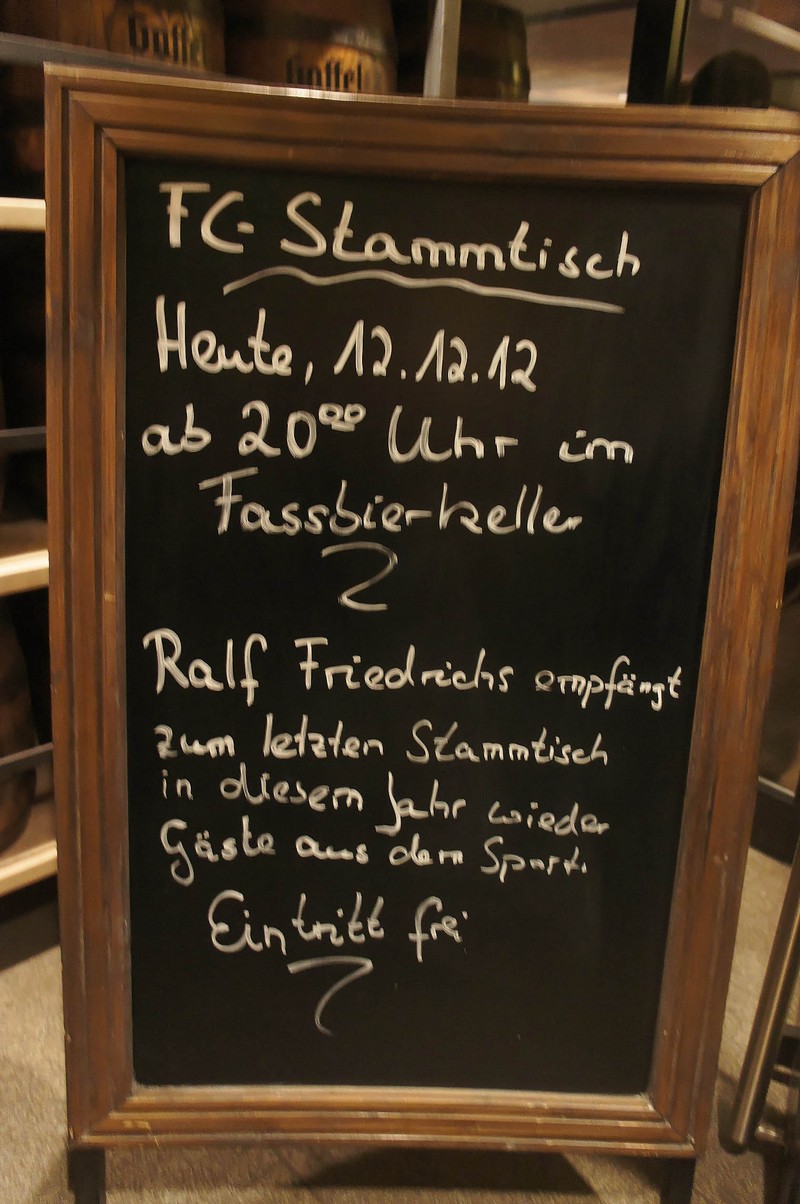 Gaffel
Gaffel
FC-Stammtisch
Heute, 12.12.12
ab 20⁰⁰ Uhr im
Fassbierkeller
Ralf Friedrichs empfängt
zum letzten Stammtisch
in diesem Jahr wieder
Gäste aus dem Sport.
Eintritt frei